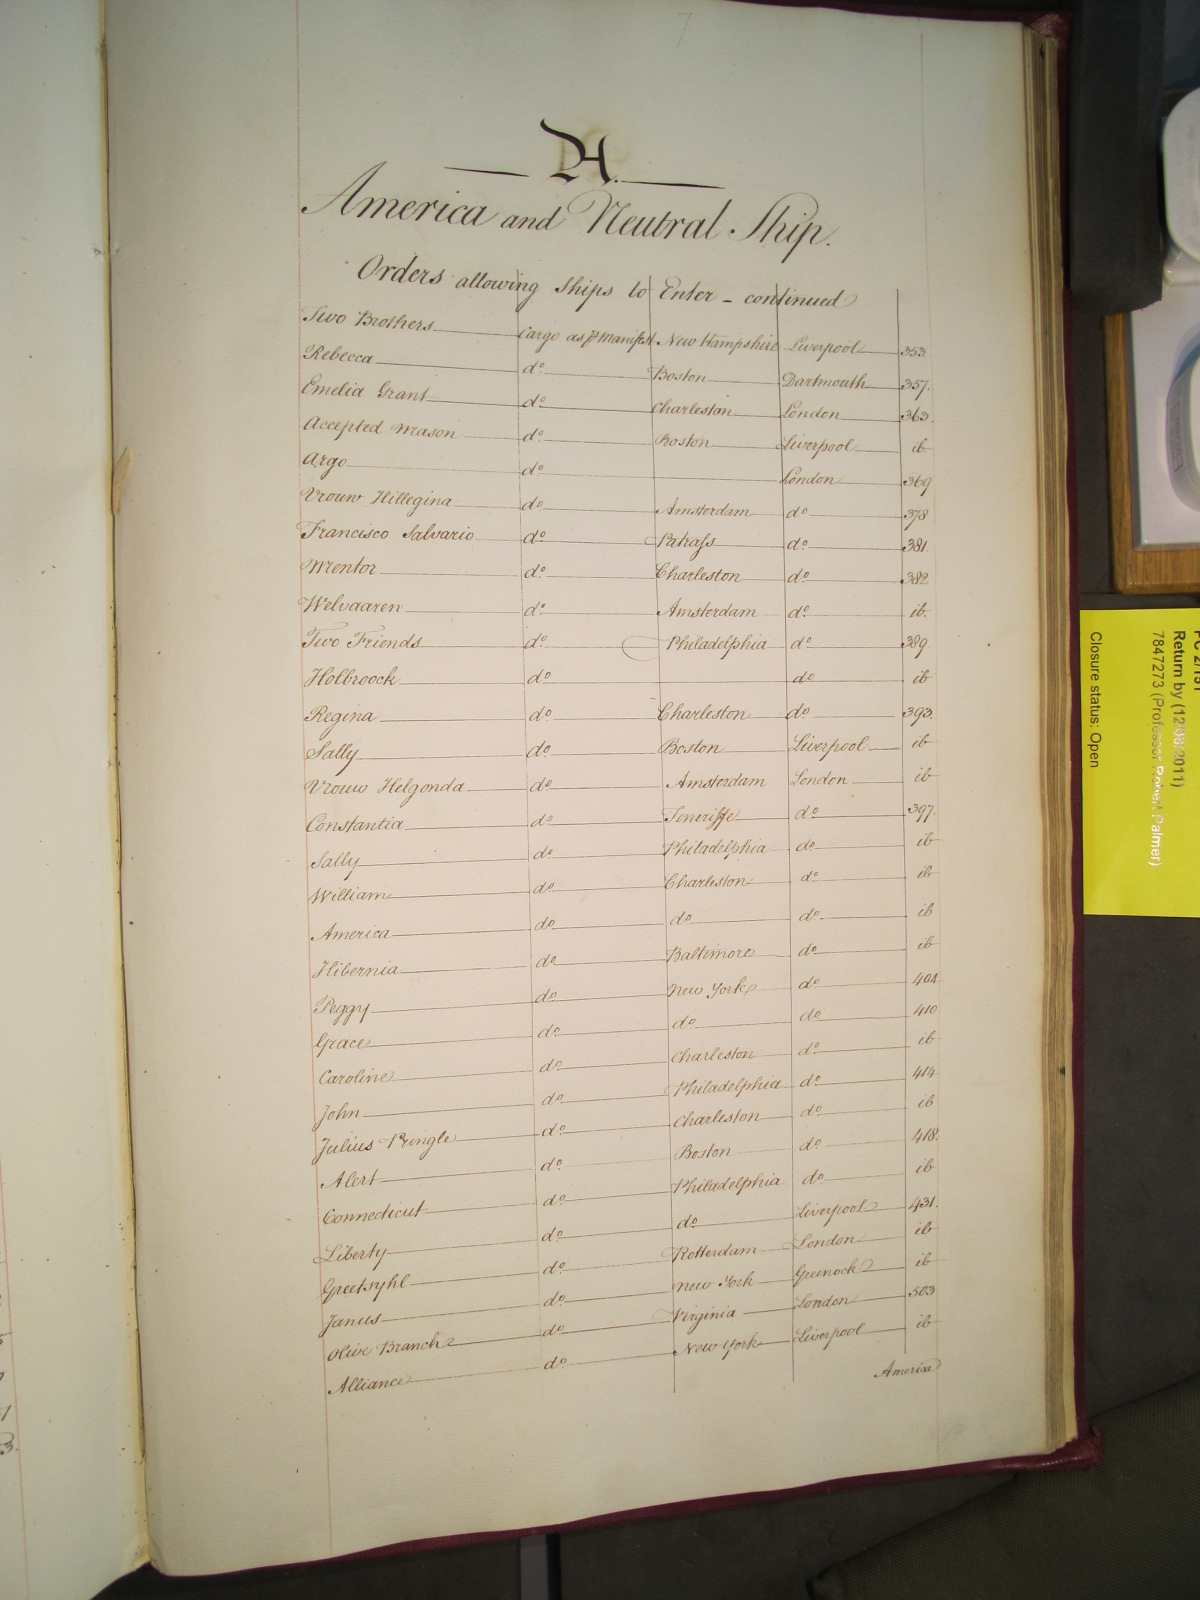 7
A.
America and Neutral Ship.
Orders allowing Ships to Enter - continued
Two Brothers Cargo as P Manifest New Hampshire Liverpool 353
Rebecca do Boston Dartmouth 357.
Emelia Grant do Charleston London 363.
Accepted Mason do Boston Liverpool ib
Argo do London 369
Vrouw Hillegina do Amsterdam do 378
Francisco Salvario do Patrass do 381.
Mentor do Charleston do 382
Welvaaren do Amsterdam do ib.
Two Friends do Philadelphia do 389.
Holbroock do do ib
Regina do Charleston do 393.
Sally do Boston Liverpool ib
Vrouw Helgonda do Amsterdam London ib
Constantia do Teneriffe do 397.
Sally do Philadelphia do ib
William do Charleston do ib
America do do do ib
Hibernia do Baltimore do ib
Peggy do New York do 404
Grace do do do 410
Caroline do Charleston do ib
John do Philadelphia do 414
Julius Pringle do Charleston do ib
Alert do Boston do 418.
Connecticut do Philadelphia do ib
Liberty do do Liverpool 431.
Greetsyhl do Rotterdam London ib
Janus do New York Greenock ib
Olive Branch do Virginia London 503
Alliance do New York Liverpool ib
America
Return by (12/08/2011)
7847273 (Professor Robert Palmer)
Closure status: Open